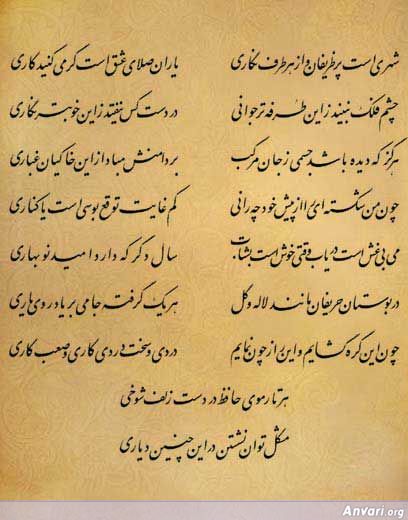 شهری است پر ظریفان و از هر طرف نگاری یاران صلای عشق است گر می کنید کاری
چشم فلک نبیند زاین طرفه تر جوانی در دست کس نیفتد زاین خوبتر نگاری
هرگز که دیده باشد جسمی ز جان مرکب بر دامنش مباد از این خاکیان غباری
چون من شکسته ای را از پیش خود چه رانی کم غایت توقع بوسی است یا کناری
می بی غش است دریاب وقتی خوش است بشتاب سال دگر که دارد امید نو بهاری
در بوستان حریفان مانند لاله و گل هر یک گرفته جامی بر یاد روی یاری
چون این گره گشایم و این راز چون نمایم دردی و سخت دردی کاری و صعب کاری
هر تار موی حافظ در دست زلف شوخی
مشکل توان نشستن در این چنین دیاری
Anvari.org